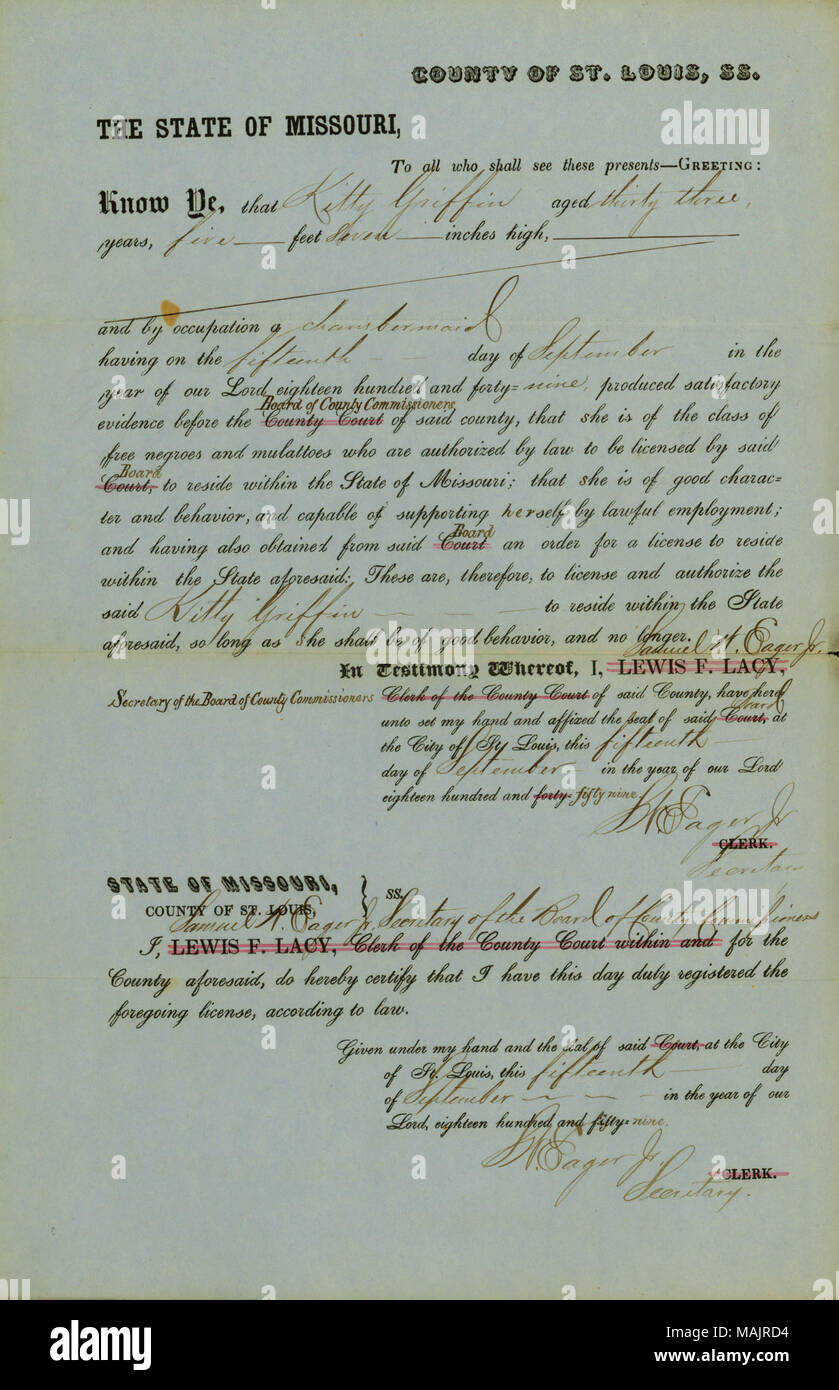 COUNTY OF ST. LOUIS, SS.
THE STATE OF MISSOURI,
To all who shall see these presents—GREETING:
Know Ye, that Kitty Griffin aged thirty three,
years, five feet seven inches high,
and by occupation a chambermaid
having on the fifteenth day of September in the
year of our Lord eighteen hundred and forty=nine, produced satisfactory
Board of County Commissioners
evidence before the County Court of said county, that she is of the class of
free negroes and mulattoes who are authorized by law to be licensed by said
Board
Court, to reside within the State of Missouri; that she is of good charac-
ter and behavior, and capable of supporting herself by lawful employment;
Board
and having also obtained from said Court an order for a license to reside
within the State aforesaid: These are, therefore, to license and authorize the
said Kitty Griffin to reside within the State
aforesaid, so long as she shall be of good behavior, and no longer.
Samuel W. Eager Jr.
In Testimony Whereof, I, LEWIS F. LACY,
Secretary of the Board of County Commissioners Clerk of the County Court of said County, have here
Board
unto set my hand and affixed the seal of said Court, at
the City of St. Louis, this fifteenth
day of September in the year of our Lord
eighteen hundred and forty- fifty nine
S.W. Eager Jr
CLERK.
Secretary
STATE OF MISSOURI,
COUNTY OF ST. LOUIS, } SS.
Samuel W. Eager Jr. Secretary of the Board of County Commissioners
I, LEWIS F. LACY, Clerk of the County Court within and for the
County aforesaid, do hereby certify that I have this day duly registered the
foregoing license, according to law.
Given under my hand and the seal of said Court, at the City
of St. Louis, this fifteenth day
of September in the year of our
Lord, eighteen hundred and fifty=nine.
S.W. Eager Jr
CLERK.
Secretary.
a
alamy
alamy stock photo
Image ID: MAJRD4
www.alamy.com